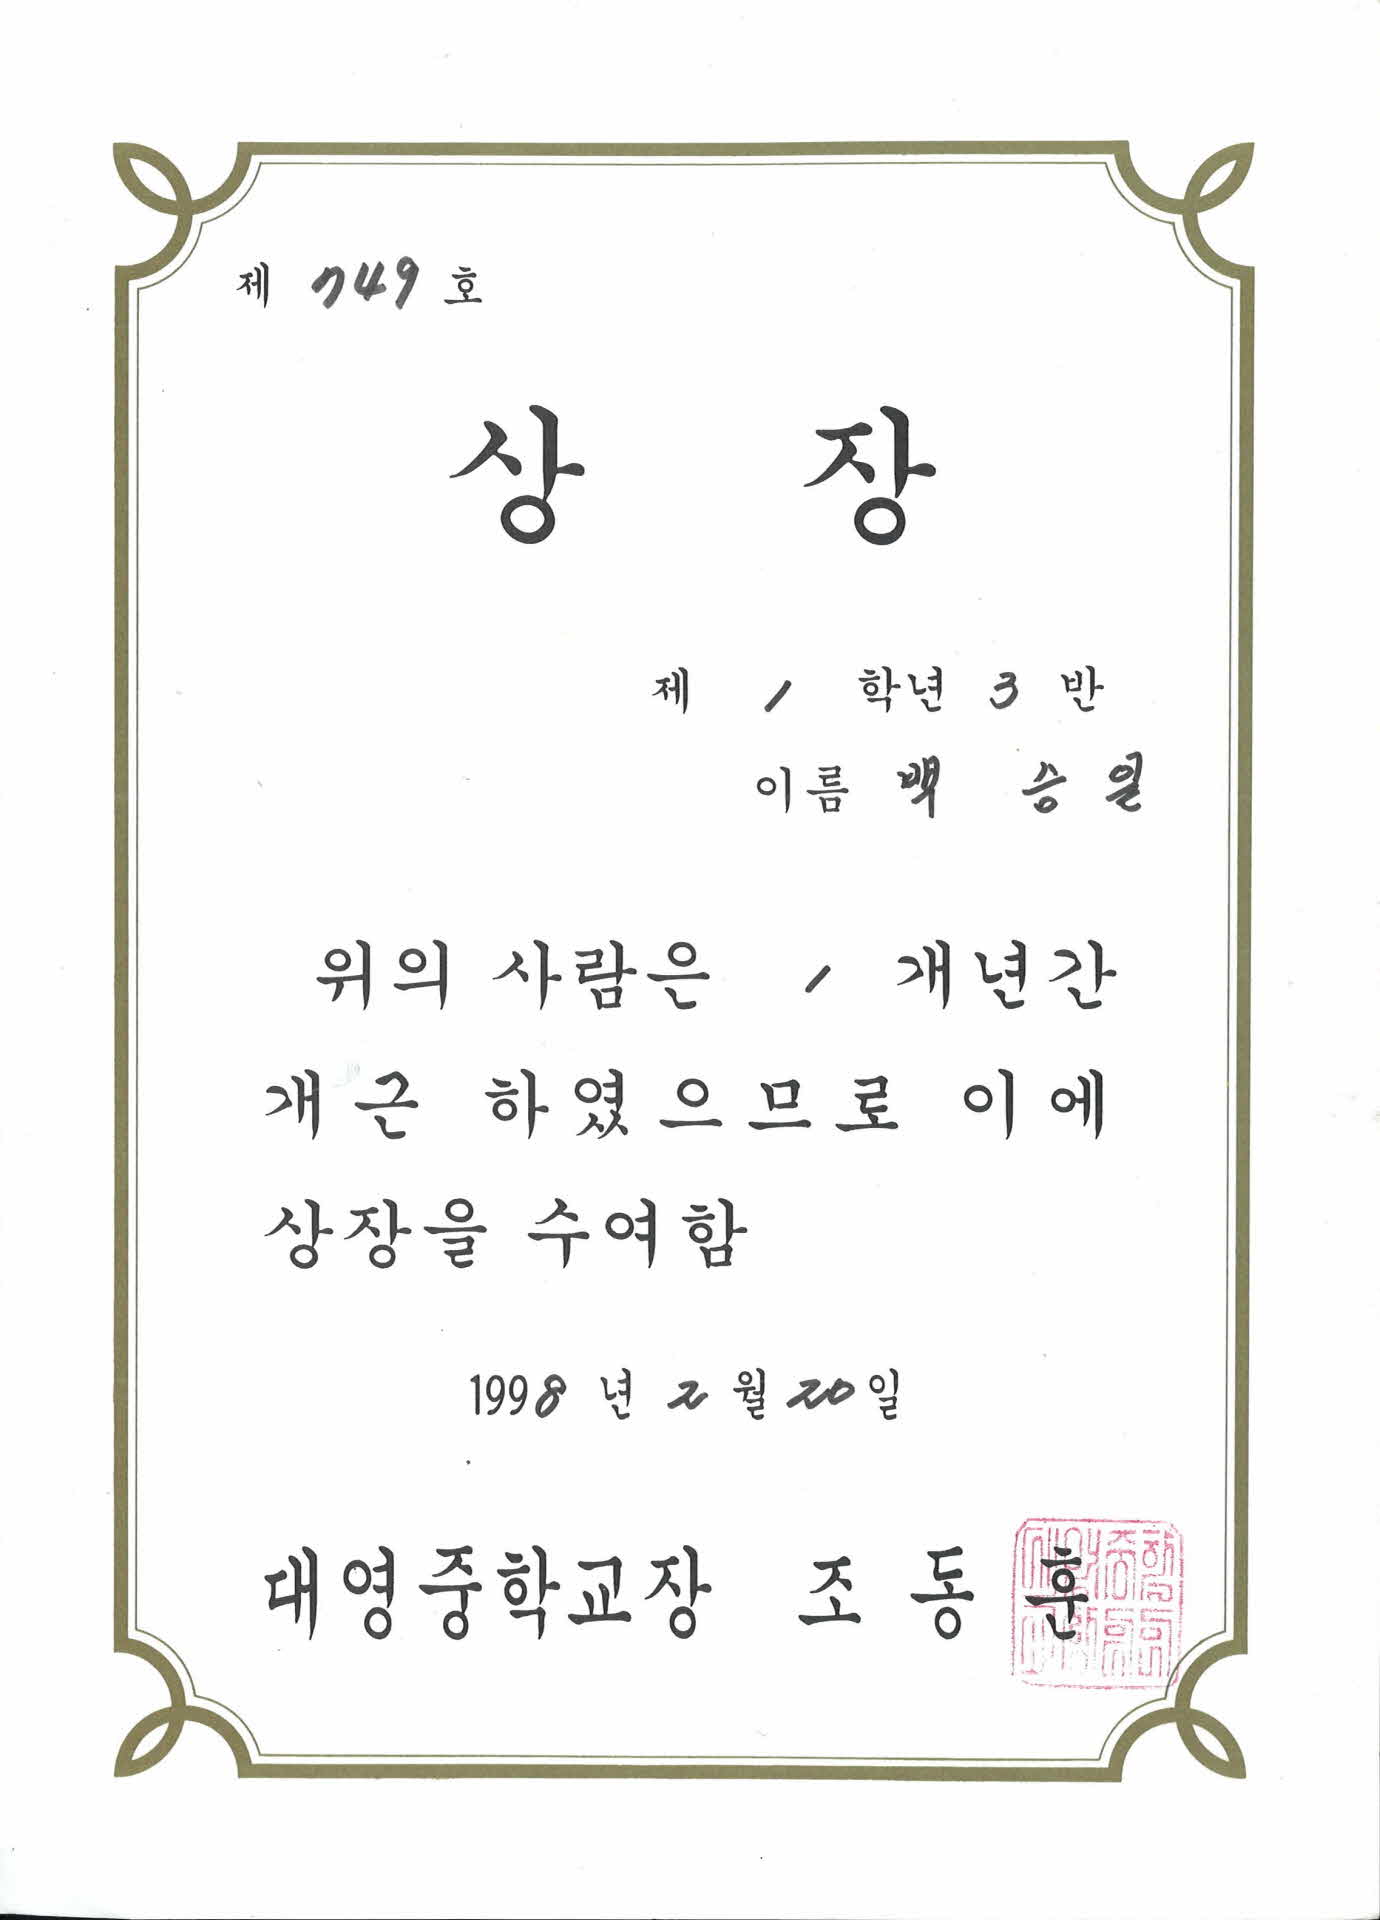 제 749 호
상 장
제 1 학년 3 반
이름 백 승 일
위의 사람은 1 개년간
개근 하였으므로 이에
상장을 수여함
1998 년 2 월 20 일
대영중학교장 조 동 훈